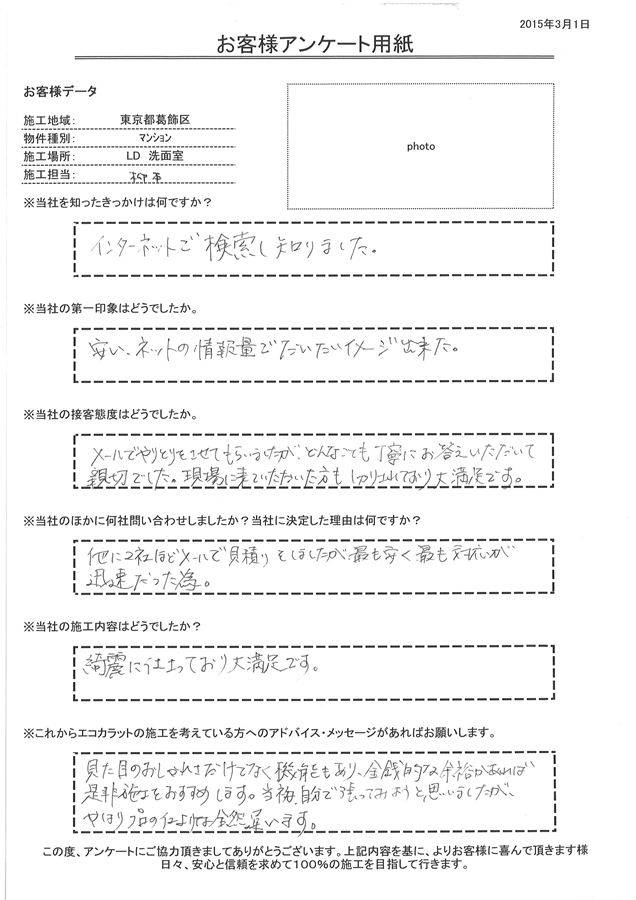 2015年3月1日
お客様アンケート用紙
お客様データ
施工地域： 東京都葛飾区
物件種別： マンション
施工場所： LD 洗面室
施工担当：
photo
※当社を知ったきっかけは何ですか？
インターネットで検索し知りました。
※当社の第一印象はどうでしたか。
安い、ネットの情報量でだいたいイメージ出来た。
※当社の接客態度はどうでしたか。
メールでやりとりをさせてもらいましたが、どんなことも丁寧にお答えいただいて
親切でした。現場に来ていただいた方も しており大満足です。
※当社のほかに何社問い合わせしましたか？当社に決定した理由は何ですか？
他に2社ほどメールで見積りをしましたが、最も安く最も対応が
迅速だった為。
※当社の施工内容はどうでしたか？
綺麗に仕上っており大満足です。
※これからエコカラットの施工を考えている方へのアドバイス・メッセージがあればお願いします。
見た目のおしゃれさだけでなく機能もあり、金銭的な余裕があれば
是非施工をおすすめします。当初、自分で張ってみようと思いましたが、
やはりプロの仕上げは全然違います。
この度、アンケートにご協力頂きましてありがとうございます。上記内容を基に、よりお客様に喜んで頂きます様
日々、安心と信頼を求めて100％の施工を目指して行きます。